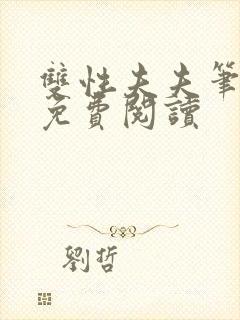 雙性夫夫筆
免費閱讀
劉哲